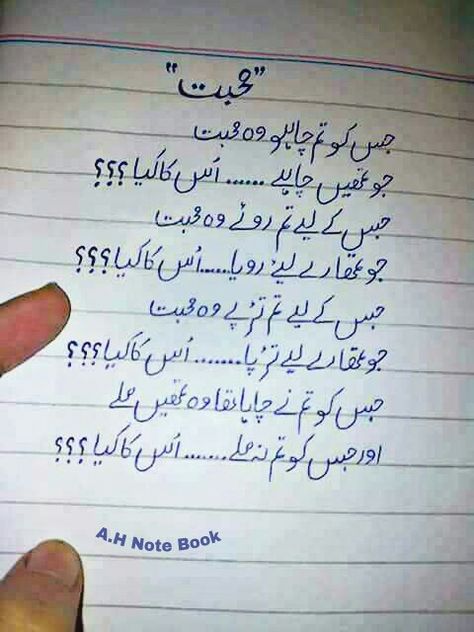 "محبت"
جس کو تم چاہو وہ محبت
جو تمھیں چاہے ...... اُس کا کیا ؟؟؟
جس کے لیے تم روئے وہ محبت
جو تمھارے لیئے رویا......اُس کا کیا؟؟؟
جس کے لیے تم تڑپے وہ محبت
جو تمھارے لیے تڑپا....... اُس کا کیا؟؟؟
جس کو تم نے چاہا تھا وہ تمھیں ملے
اور جس کو تم نہ ملے....... اُس کا کیا ؟؟؟
A.H Note Book